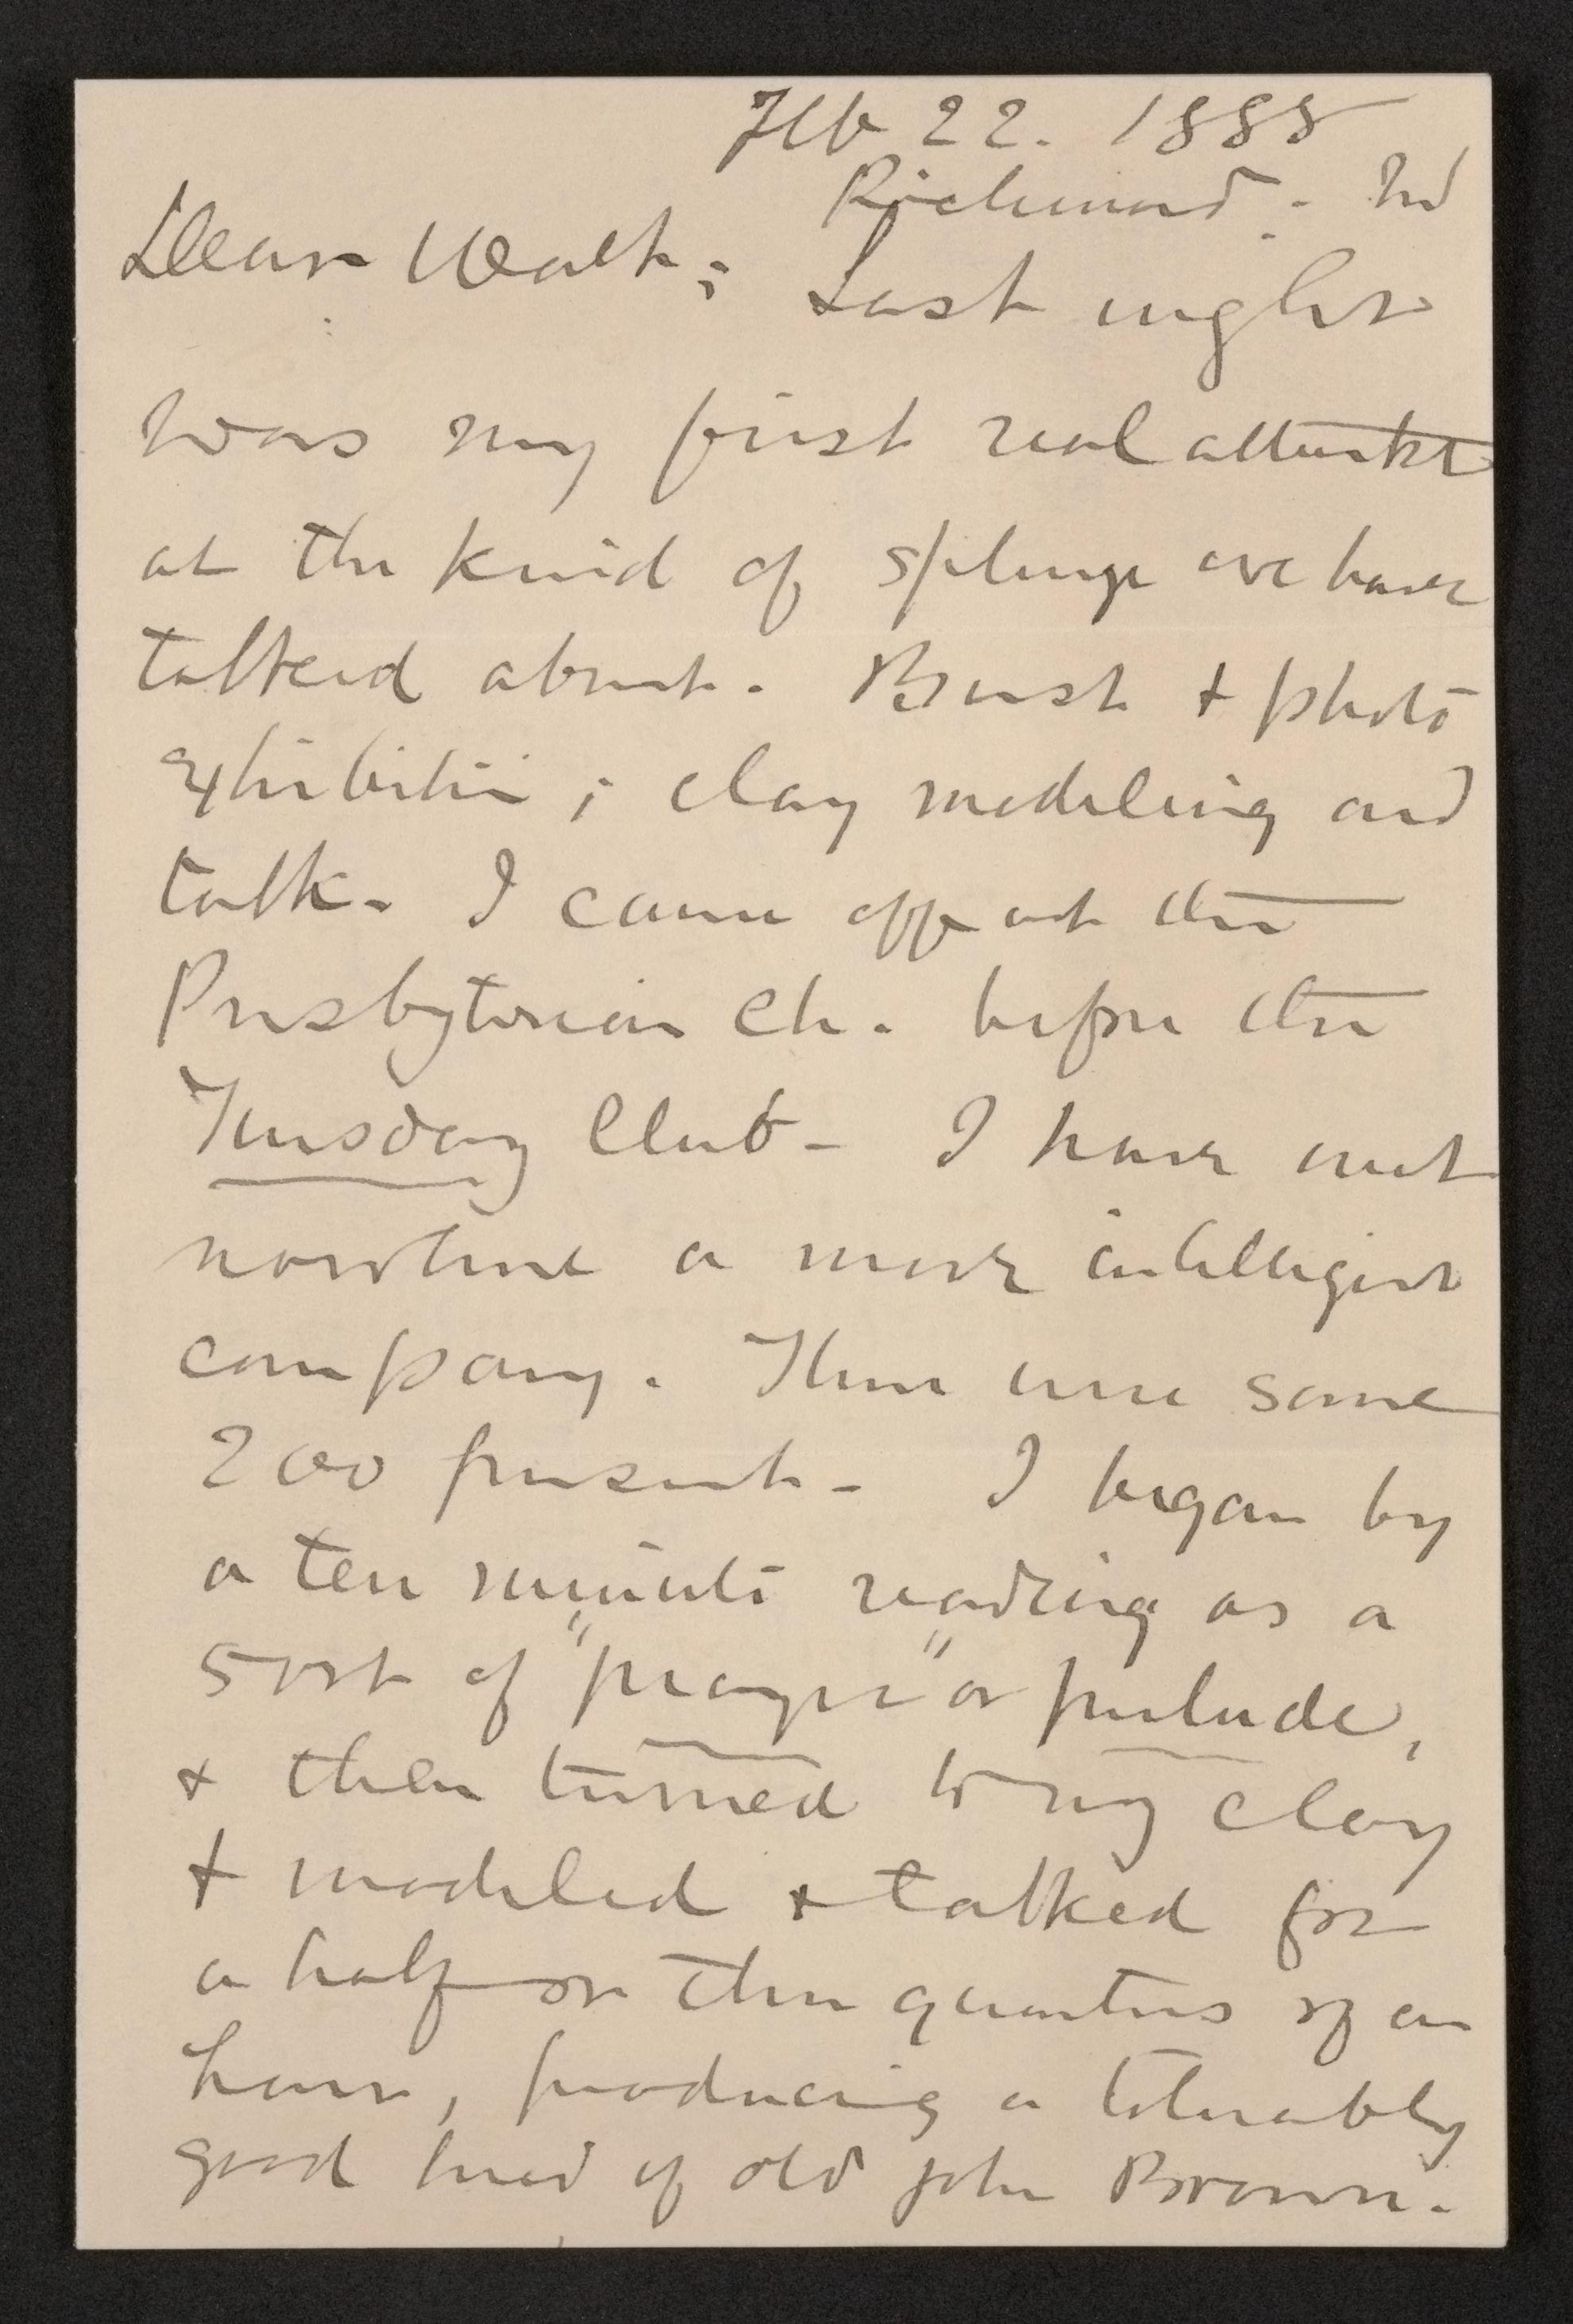 Feb 22. 1888
Richmond. Ind
Dear Walt; Last night
was my first real attempt
at the kind of splurge we have
talked about. Bust & photo
exhibition; clay modeling and
talk. I came off at the
Presbyterian Ch. before the
Tuesday Club. I have met
nowhere a more intelligent
company. There were some
200 present. I began by
a ten minute reading as a
sort of "prayer" or prelude,
& then turned to my clay
& modeled & talked for
a half or three quarters of an
hour, producing a tolerably
good head of old John Brown.